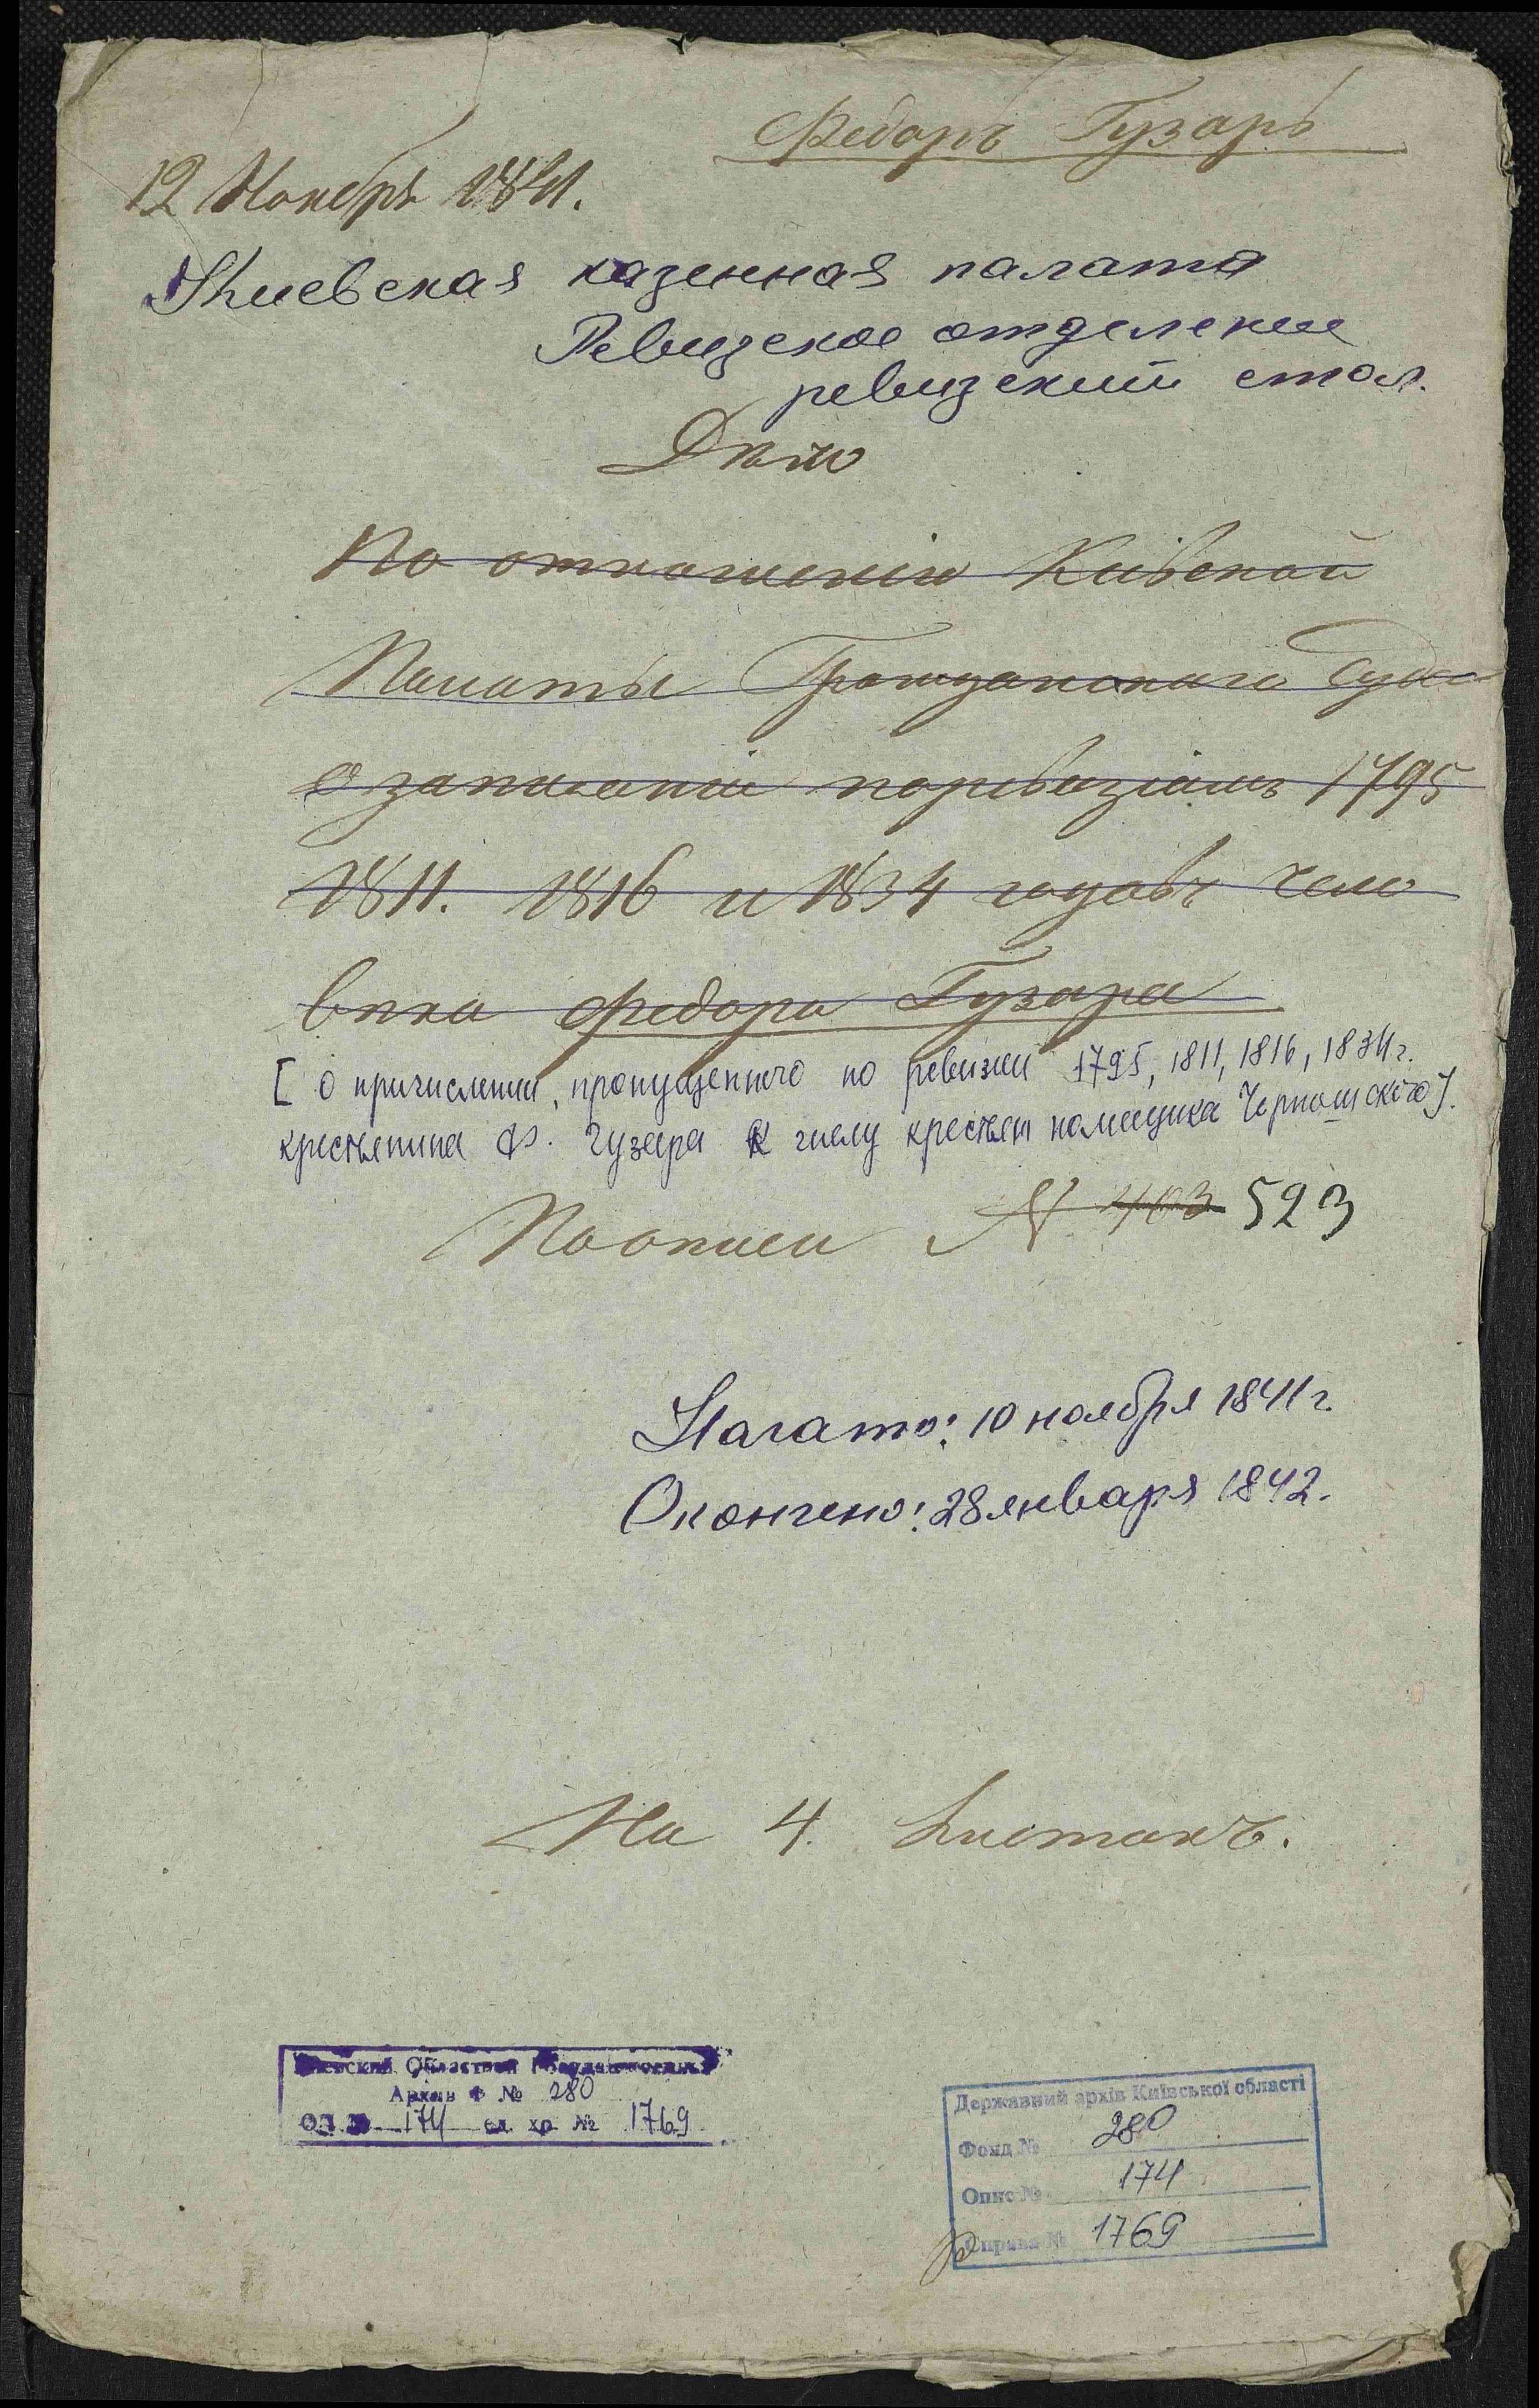 Федоръ Гузаръ
12 Ноября 1841.
Киевская казенная палата
Ревизское отделение
ревизский стол.
Дѣло
По отношенію Кіевской
Палаты Гражданскаго Суда
о записаніи поревизіямъ 1795
1811. 1816 и 1834 годовъ чело
вѣка Федора Гузара
[ о причислении, пропущенного по ревизии 1795, 1811, 1816, 1834 г.
крестьянина Ф. Гузара к числу крестьян помещика].
Поописи № 403 523
Начато: 10 ноября 1841 г.
Окончено: 28 января 1842.
На 4. Листахъ.
Киевский Областной Государственный
Архив Ф № 280
ОП № 174 ед. хр № 1769
Державний архів Київської області
Фонд № 280
Опис № 174
Справа № 1769